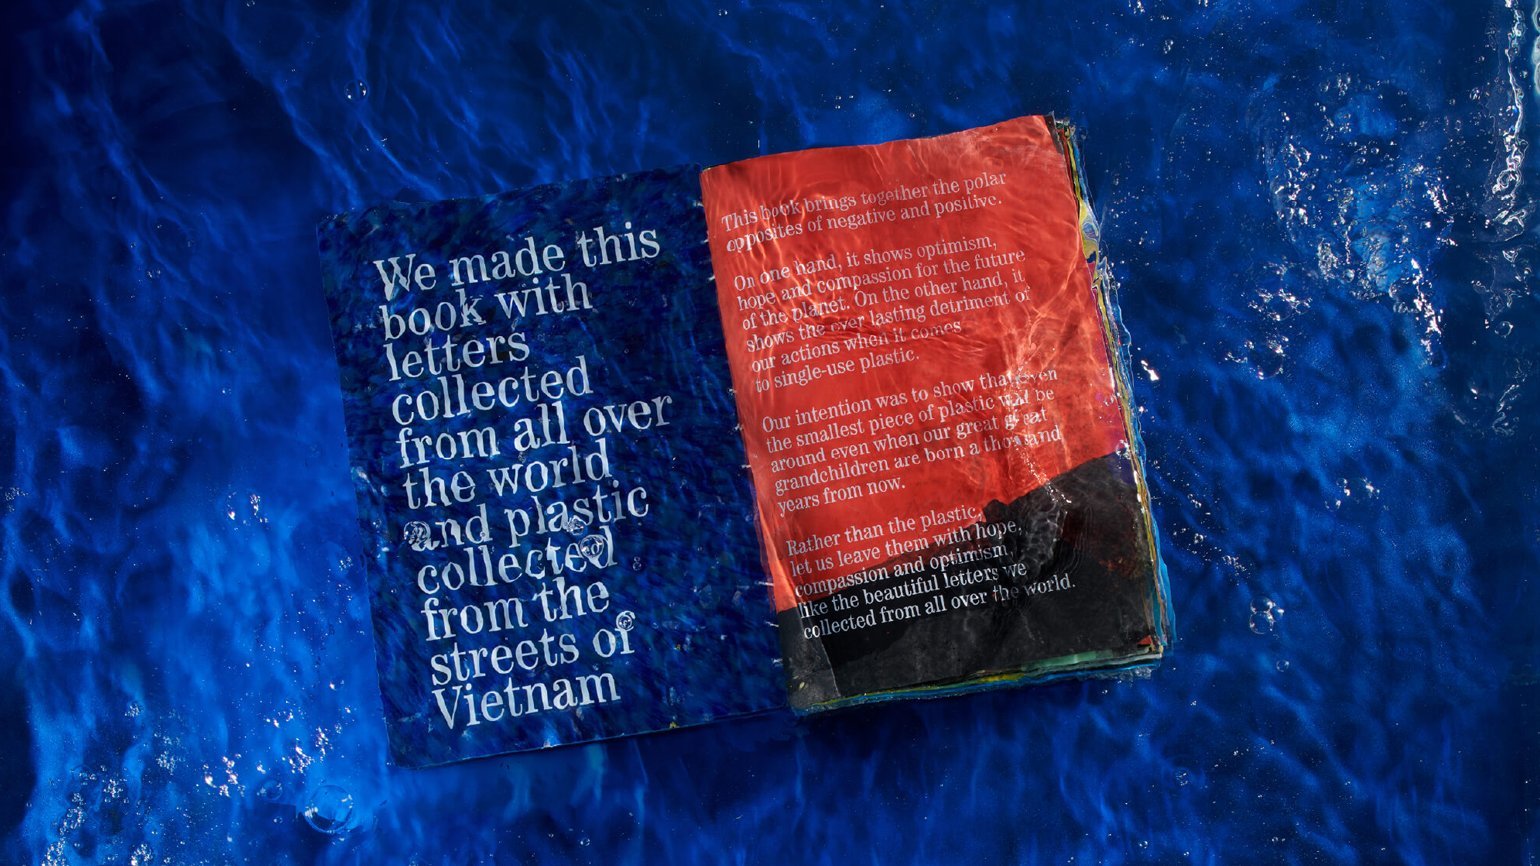 We made this
book with
letters
collected
from all over
the world
and plastic
collected
from the
streets of
Vietnam
This book brings together the polar
opposites of negative and positive.
On one hand, it shows optimism,
hope and compassion for the future
of the planet. On the other hand, it
shows the ever lasting detriment of
our actions when it comes
to single-use plastic.
Our intention was to show that even
the smallest piece of plastic will be
around even when our great great
grandchildren are born a thousand
years from now.
Rather than the plastic,
let us leave them with hope,
compassion and optimism,
like the beautiful letters we
collected from all over the world.